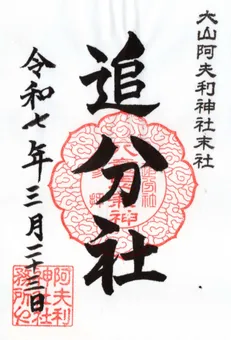 大山阿夫利神社末社
追分社
令和七年三月二十三日
阿夫利
神社社
務所之